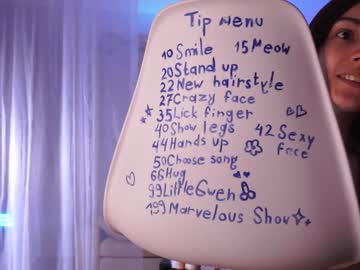 Tip menu
10 Smile 15 Meow
20 Stand up
22 New hairstyle
27 Crazy face
35 Lick finger
40 Show legs 42 Sexy face
44 Hands up
50 Choose song
66 Hug
99 Little Gwen
199 Marvelous Show